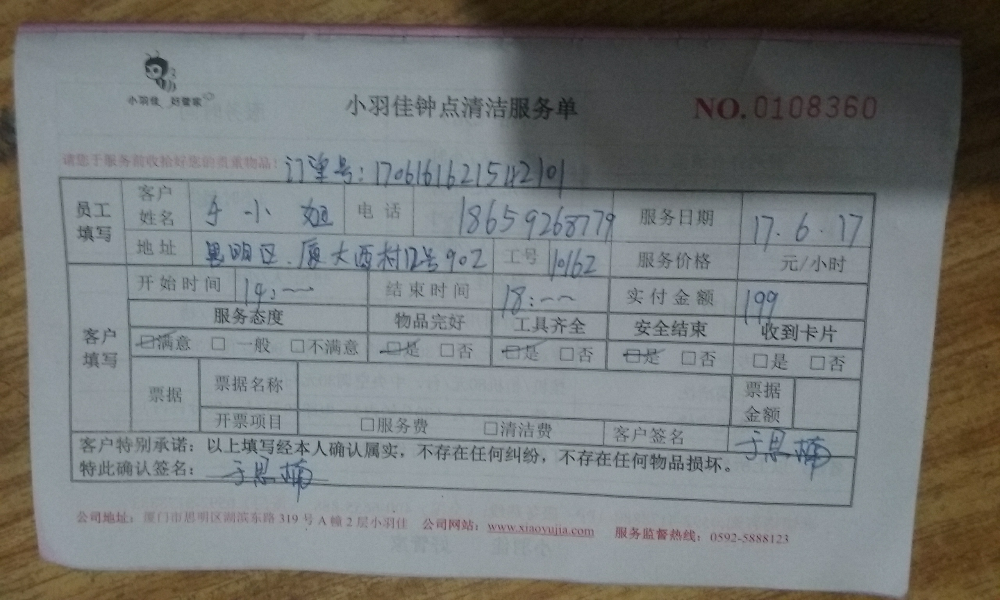 小羽佳 好管家
小羽佳钟点清洁服务单
NO.0108360
请您于服务前收拾好您的贵重物品！ 订单号：1706161621542101
员工填写 客户姓名 于小姐 电话 18659268779 服务日期 17.6.17
地址 思明区.厦大西村12号902 工号 10162 服务价格 元/小时
客户填写 开始时间 14:-- 结束时间 18:-- 实付金额 199
服务态度 物品完好 工具齐全 安全结束 收到卡片
□满意 □一般 □不满意 □是 □否 □是 □否 □是 □否 □是 □否
票据 票据名称 票据金额
开票项目 □服务费 □清洁费 客户签名 于思楠
客户特别承诺：以上填写经本人确认属实，不存在任何纠纷，不存在任何物品损坏。
特此确认签名： 于思楠
公司地址：厦门市思明区湖滨东路 319 号 A 幢 2 层小羽佳 公司网站：www.xiaoyujia.com 服务监督热线：0592-5888123